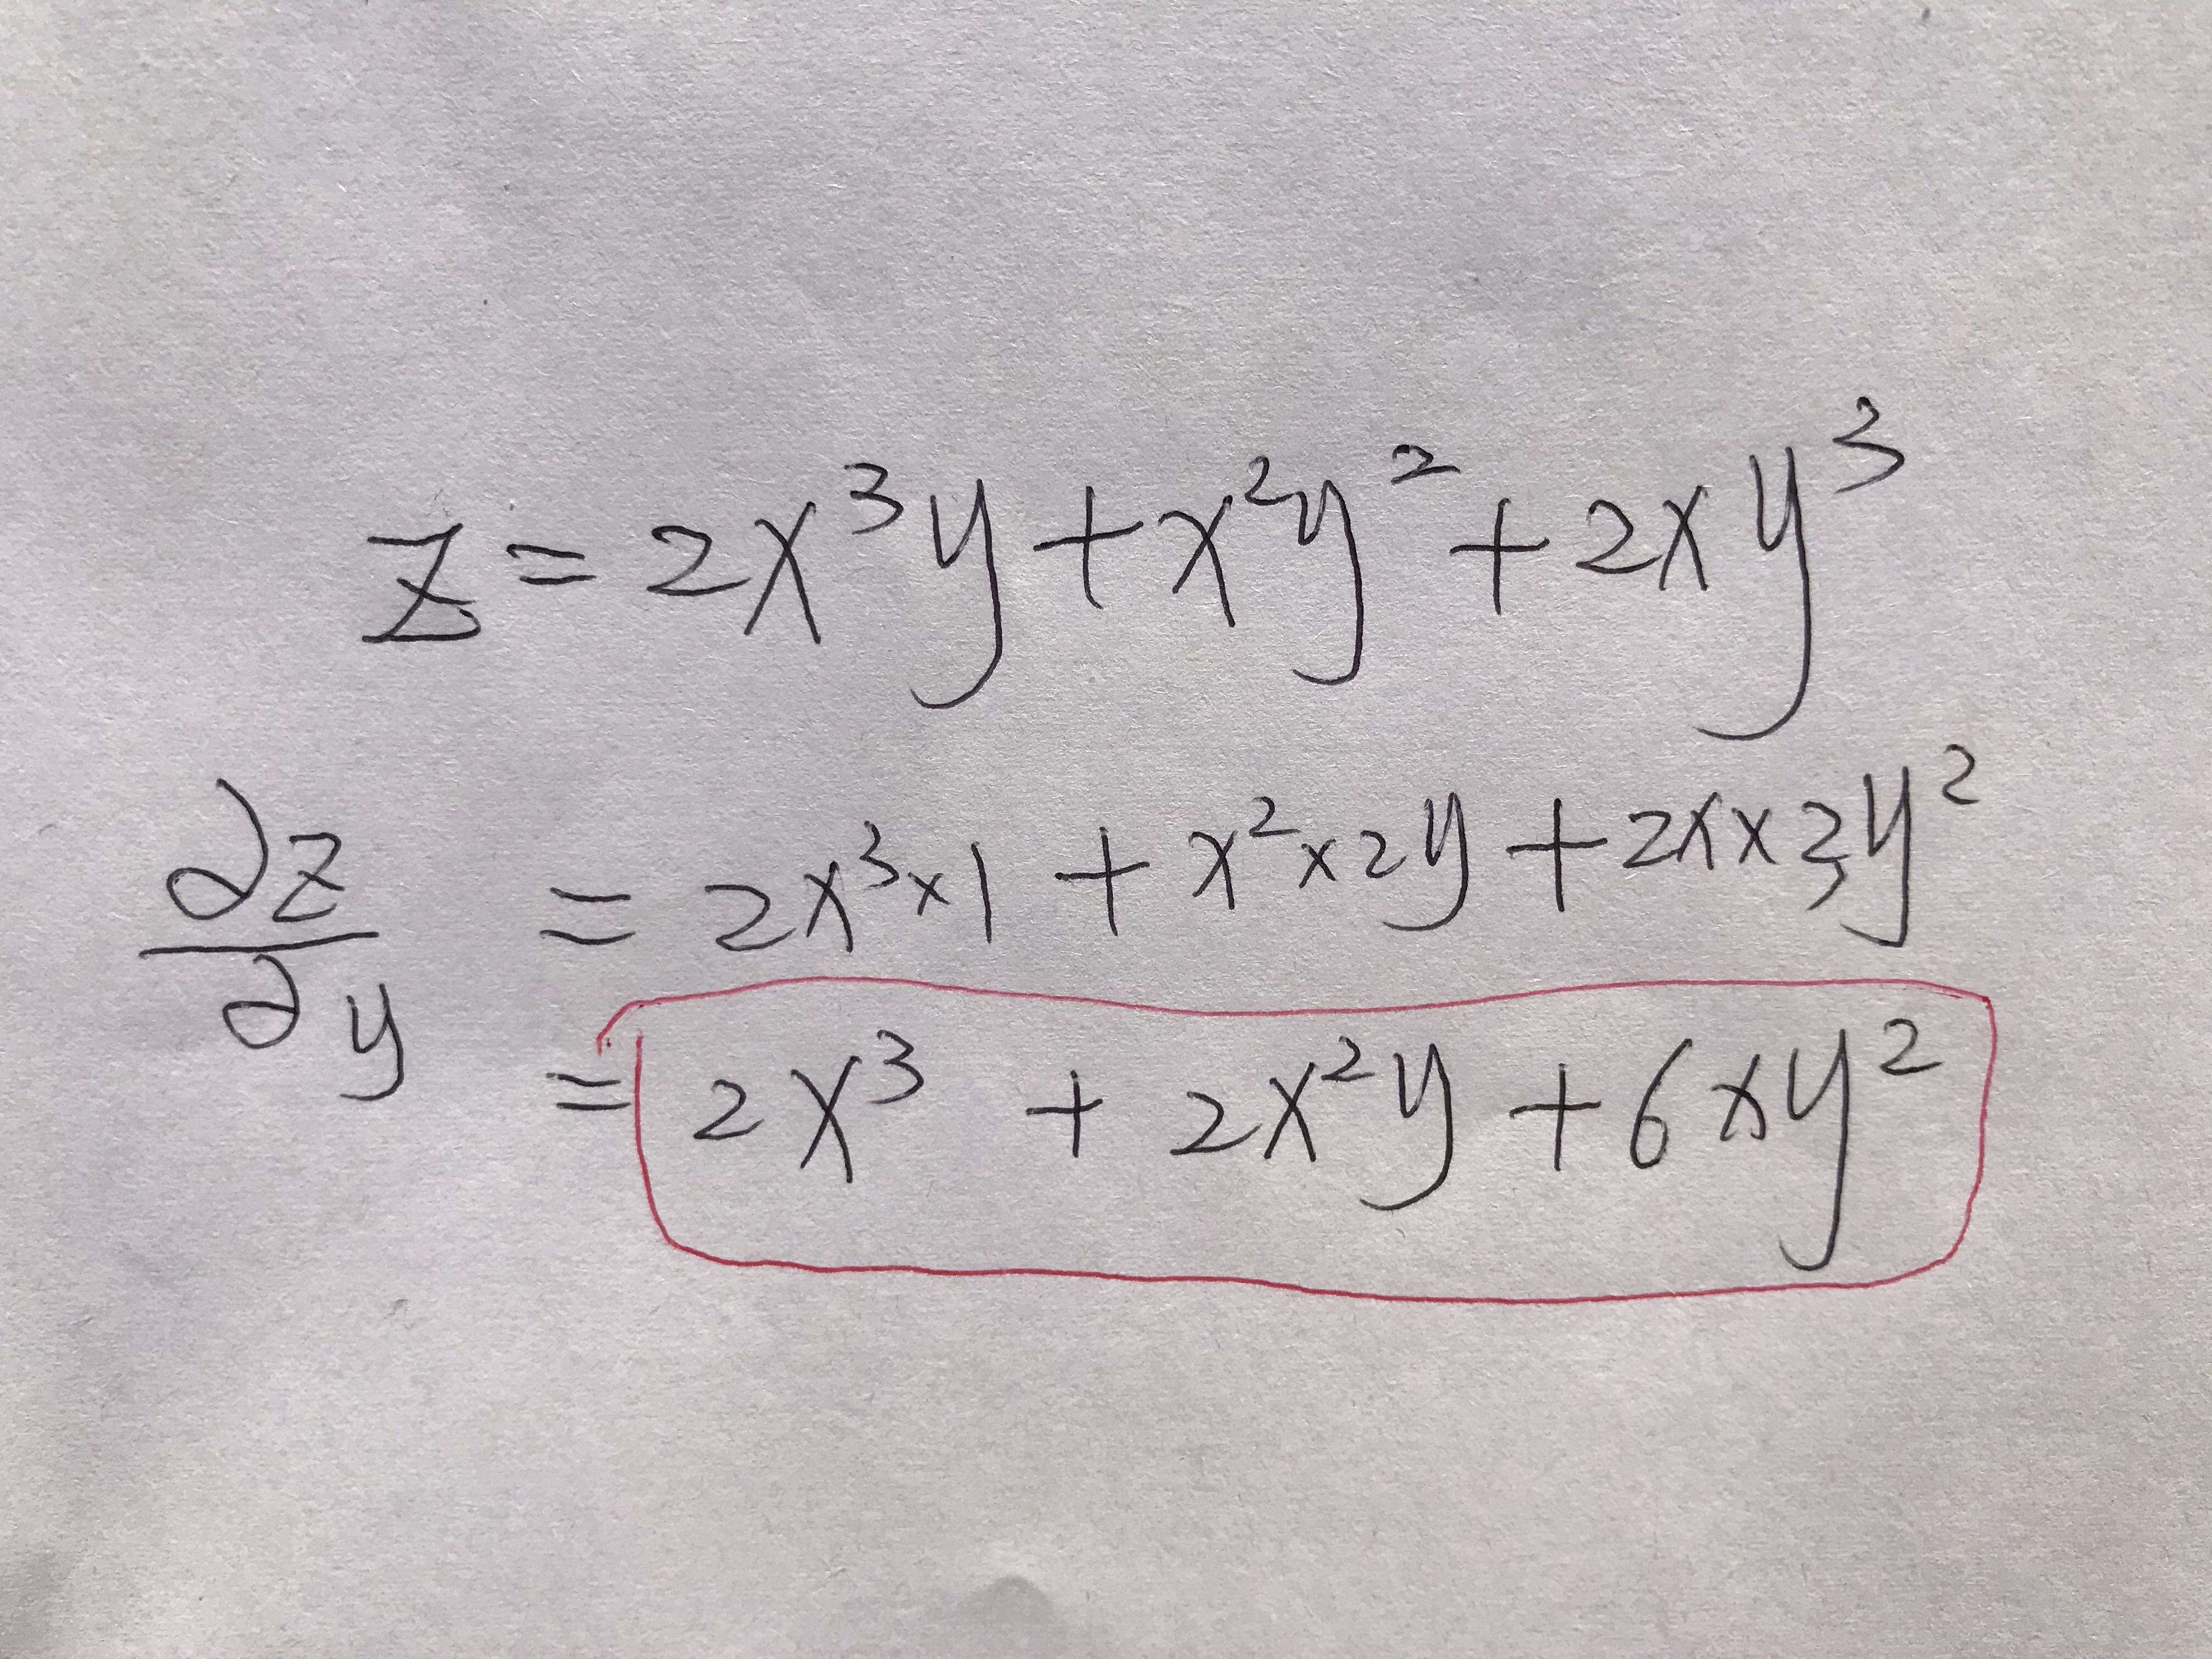 z = 2x³y + x²y² + 2xy³
∂z/∂y = 2x³×1 + x²×2y + 2x×3y²
= 2x³ + 2x²y + 6xy²